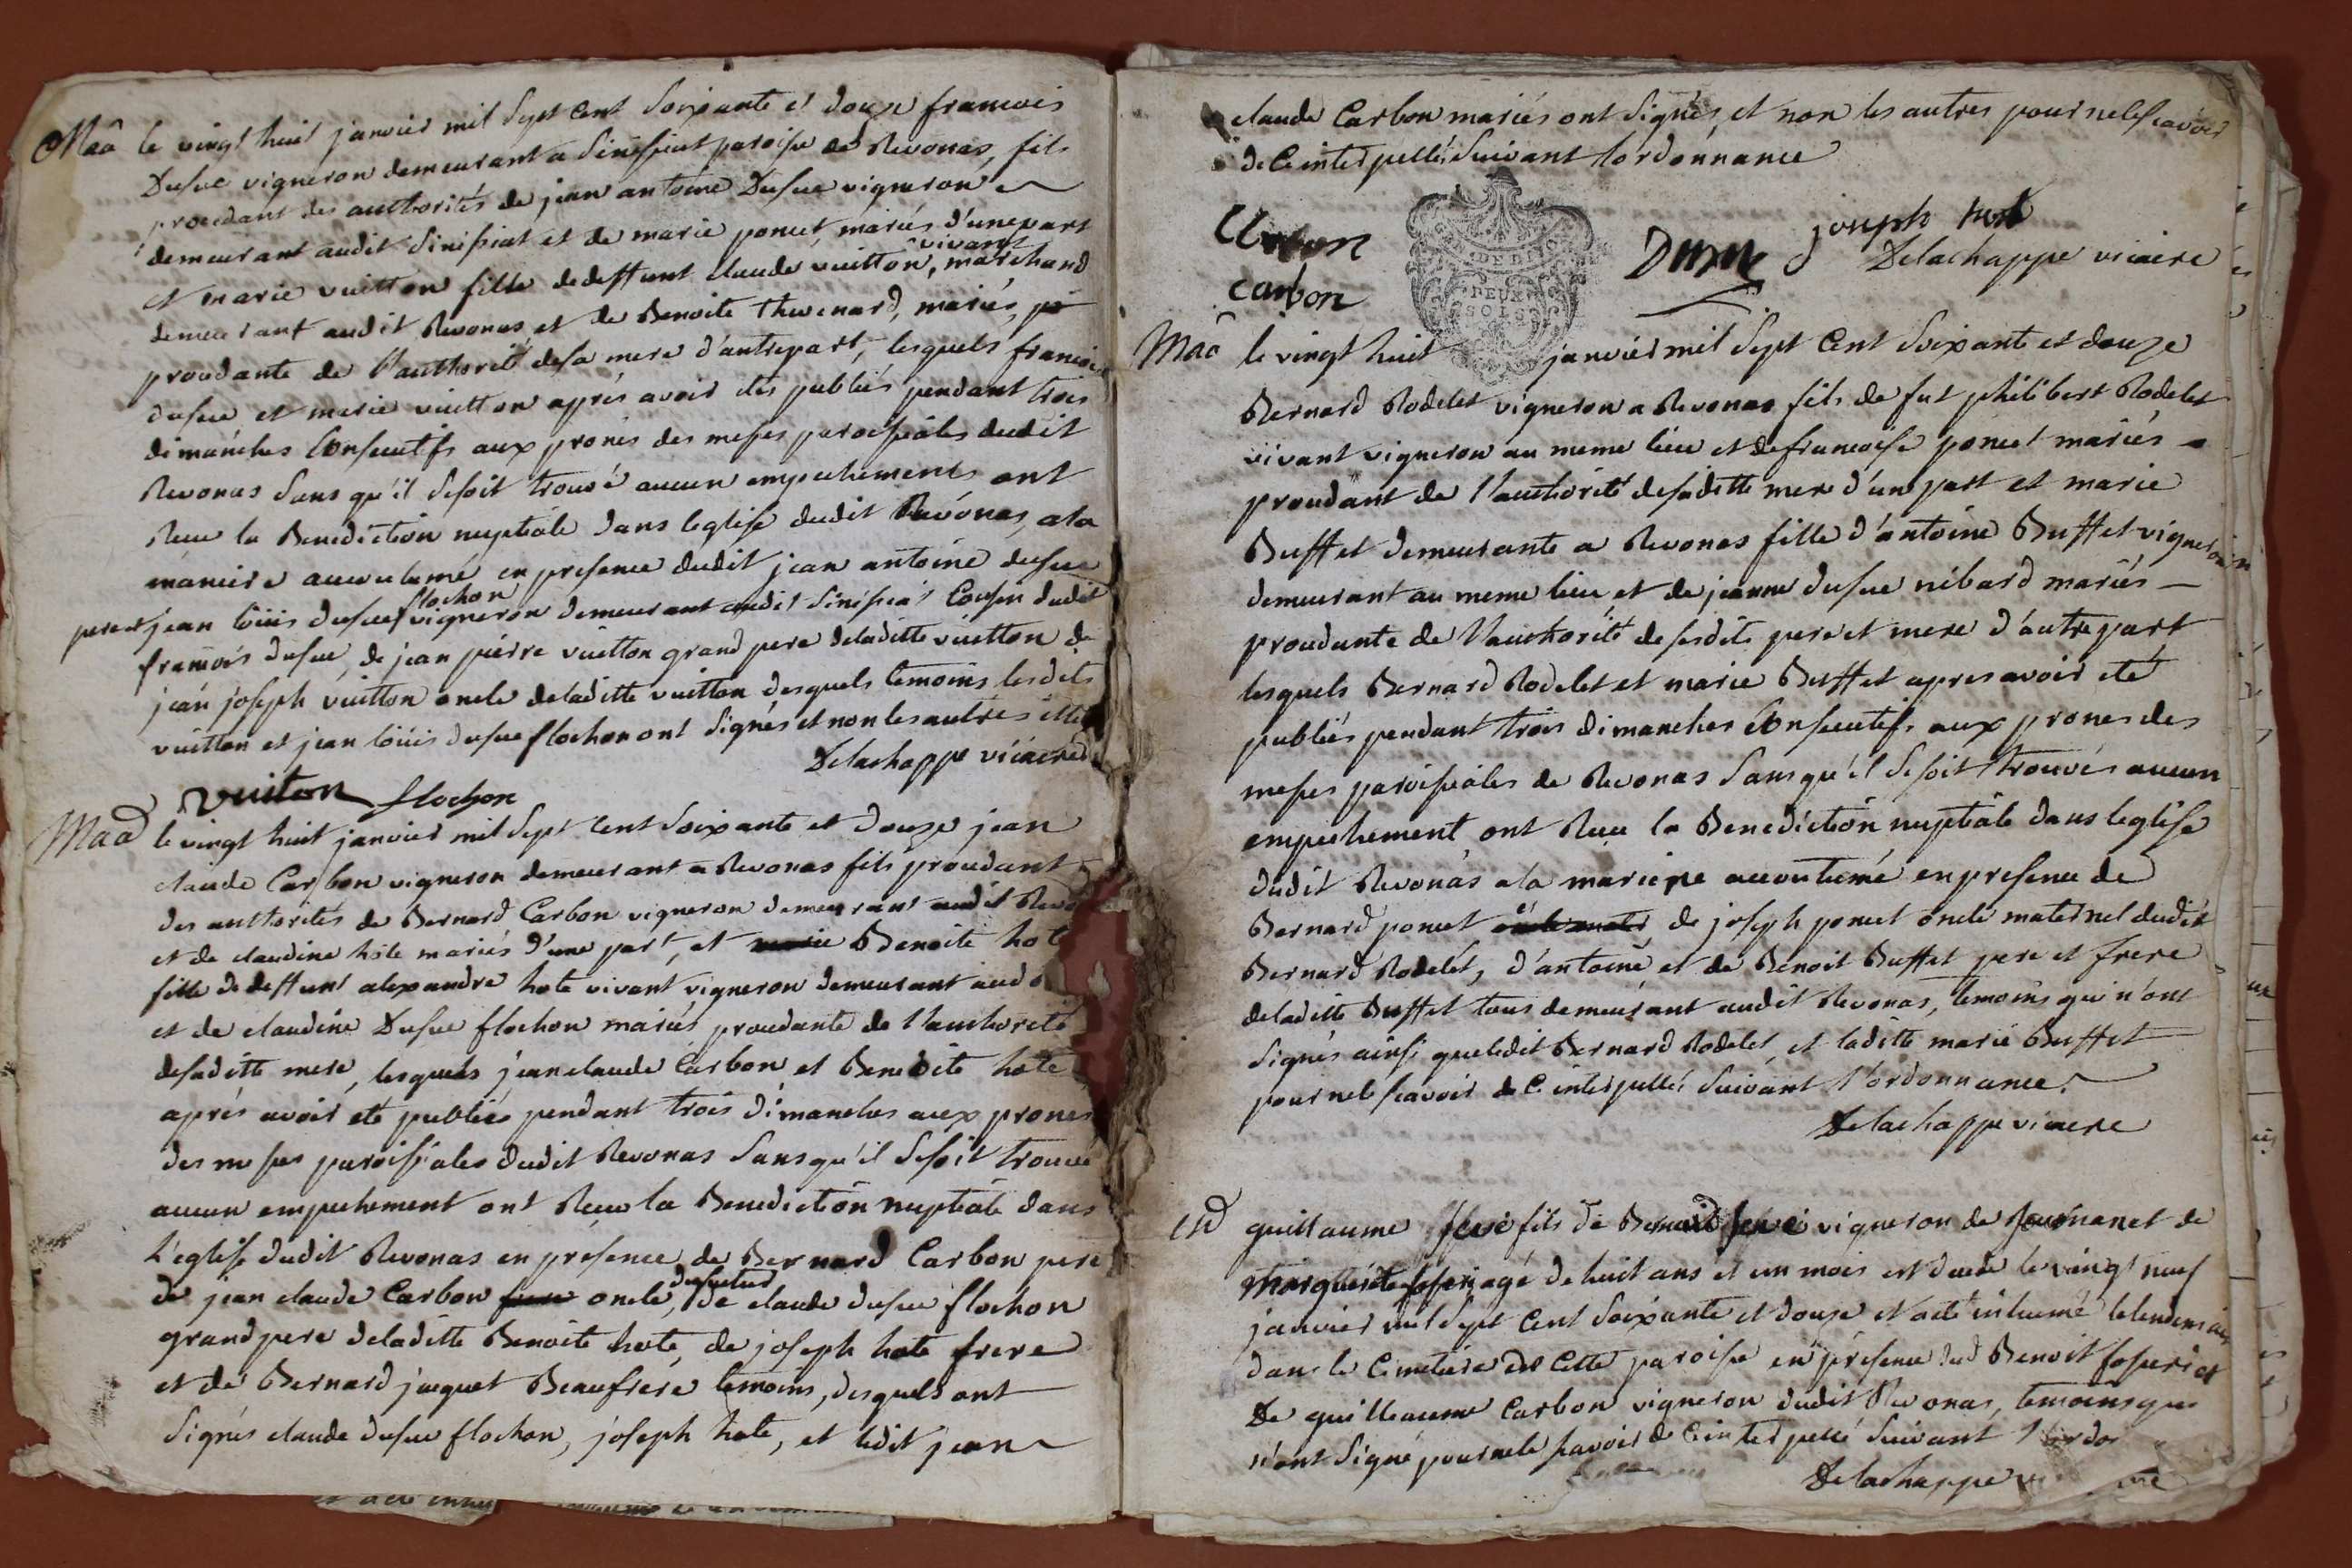 Maâ le vingt huit janvier mil sept cent soixante et douze francois
Dufue vigneron demeurant a Sinissiat paroisse de Revonas, fils
procedant des authorités de jean antoine Dufue vigneron
demeurant audit Sinissiat et de marie poncet mariés d'une part
vivant
et marie vuitton fille dedeffunt claude vuitton, marchand
demeurant audit Revonas et de Benoite thevenard, mariés, p
procedante de l'authorité desa mere d'autrepart, lesquels francois
dufue et marie vuitton aprés avoir etés publiés pendant trois
dimanches Consecutifs aux prones des messes paroissiales dudit
Revonas sans qu'il sesoit trouvé aucun empechements ont
Recu la Benediction nuptiale dans leglise dudit Revonas, ala
maniere accoutumé en presence dudit jean antoine dufue
flochon
pere et jean loüis dufue vigneron demeurant audit Sinissiat Cousin dudit
francois dufue, de jean pierre vuitton grand pere deladitte vuitton de
jean joseph vuitton oncle deladitte vuitton desquels temoins lesdits
vuitton et jean loüis dufue flochon ont signés et non les autres
Delachappe vicaire
vuiton flochon
Maâ le vingt huit janvier mil sept cent soixante et douze jean
claude Carbon vigneron demeurant a Revonas fils procedant
des authorités de Bernard Carbon vigneron demeurant audit Revo
et de claudine hote mariés d'une part, et marie Benoite hote
fille de deffunt alexandre hote vivant vigneron demeurant aud
et de claudine Dufue flochon mariés procedante de l'authorité
desaditte mere, lesquels jean claude Carbon et Benoite hote
aprés avoir eté publiés pendant trois dimanches aux prones
des messes paroissiales dudit Revonas sans qu'il sesoit trouvé
aucun empechement ont Recu la Benediction nuptiale dans
L'eglise dudit Revonas en presence de Bernard Carbon pere
de jean claude Carbon oncle, de claude dufue flochon
grand pere deladitte Benoite hote, de joseph hote frere
et de Bernard jacquet Beaufrere temoins, desquels ont
signés claude dufue flochon, joseph hote, et ledit jean
claude Carbon mariés ont signés, et non les autres pour nelescavoir
de Ce interpellés suivant lordonnance
carbon
joseph hote
Delachappe vicaire
GEN. DE DIJON
DEUX
SOLS
Maâ le vingt huit janvier mil sept cent soixante et douze
Bernard Rodelet vigneron a Revonas fils de fut philibert Rodelet
vivant vigneron au meme lieu et defrancoise poncet mariés
procedant de l'authorité desaditte mere d'une part et marie
Buffet demeurante a Revonas fille d'antoine Buffet vigneron
demeurant au meme lieu, et de jeanne dufue nibard mariés
procedante de l'authorité de sesdits pere et mere d'autre part
lesquels Bernard Rodelet et marie Buffet apres avoir eté
publiés pendant trois dimanches Consecutifs aux prones des
messes paroissiales de Revonas sans qu'il sesoit trouvés aucun
empechement, ont Recu la Benediction nuptiale dans leglise
dudit Revonas ala maniere accoutumé en presence de
Bernard poncet de joseph poncet oncle maternel dudit
Bernard Rodelet, d'antoine et de Benoit Buffet pere et frere
deladitte Buffet tous demeurant audit Revonas, temoins qui n'ont
signés ainsi queledit Bernard Rodelet, et laditte marie Buffet
pour nele scavoir de Ce interpellés suivant l'ordonnance.
Delachappe vicaire
guillaume fevé fils de fevé vigneron de et de
Marguerite agé de huit ans et un mois est decedé le vingt neuf
janvier mil sept cent soixante et douze et aeté inhumé lelendemain
dans le Cimetiere de Cette paroisse en presence dud Benoit et
De guilleaume Carbon vigneron dudit Revonas, temoins qui
n'ont signé pour nele scavoir de Ce interpellé suivant l'ordo
Delachappe